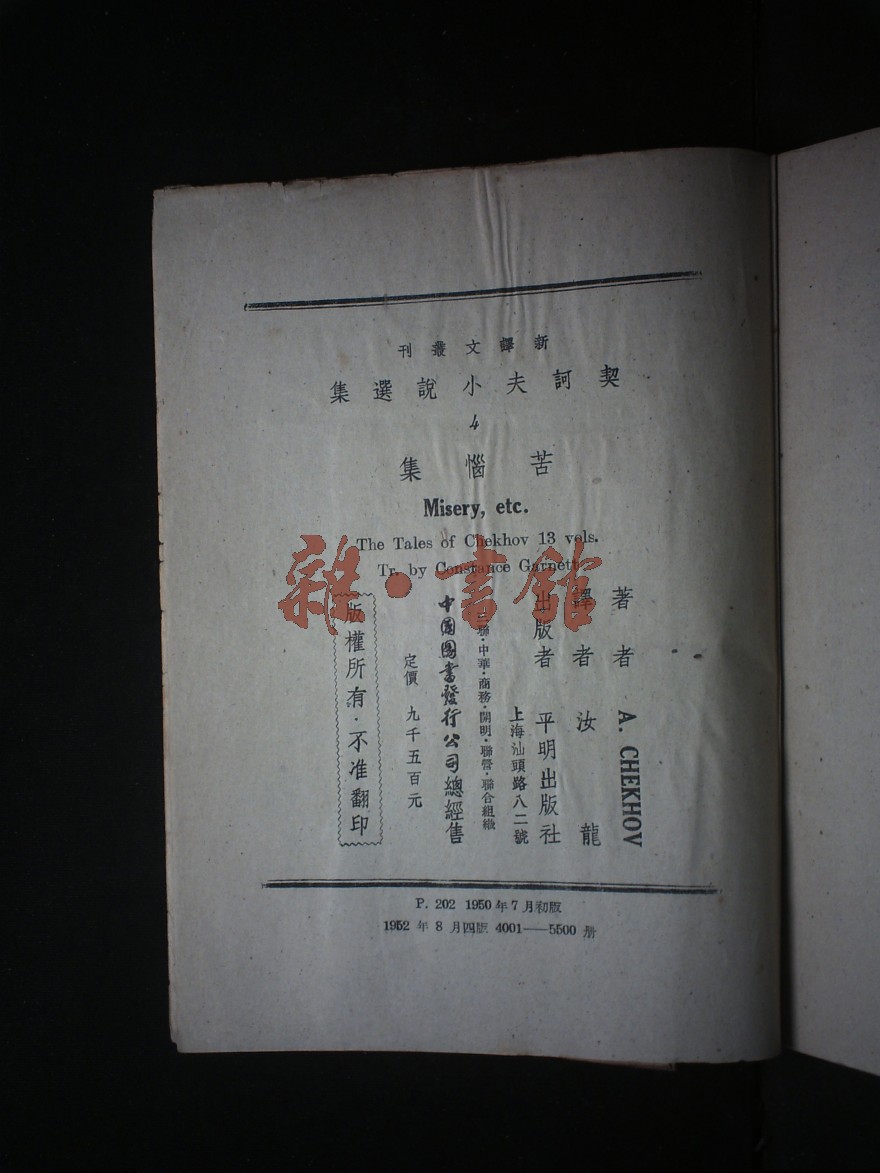 新譯文叢刊
契訶夫小說選集
4
苦惱集
Misery, etc.
The Tales of Chekhov 13 vols.
Tr. by Constance Garnett
著者 A. CHEKHOV
譯者 汝龍
出版者 平明出版社
上海汕頭路八二號
三聯·中華·商務·開明·聯營·聯合組織
中國圖書發行公司總經售
定價 九千五百元
版權所有·不准翻印
P. 202 1950年7月初版
1952年8月四版 4001——5500 册
雜·書館